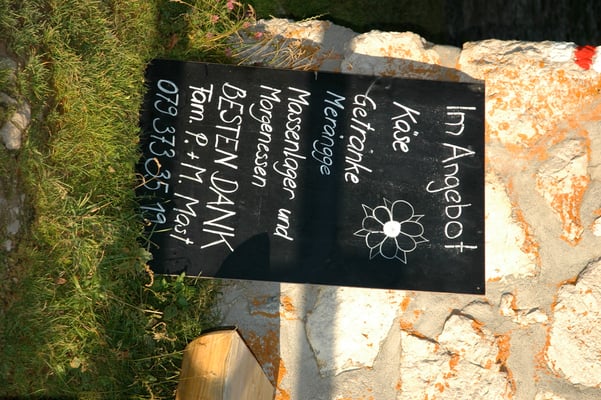 Im Angebot
Käse
Getränke
Merängge
Massenlager und
Morgenessen
BESTEN DANK
Fam. P. + M. Mast
079 373 35 19